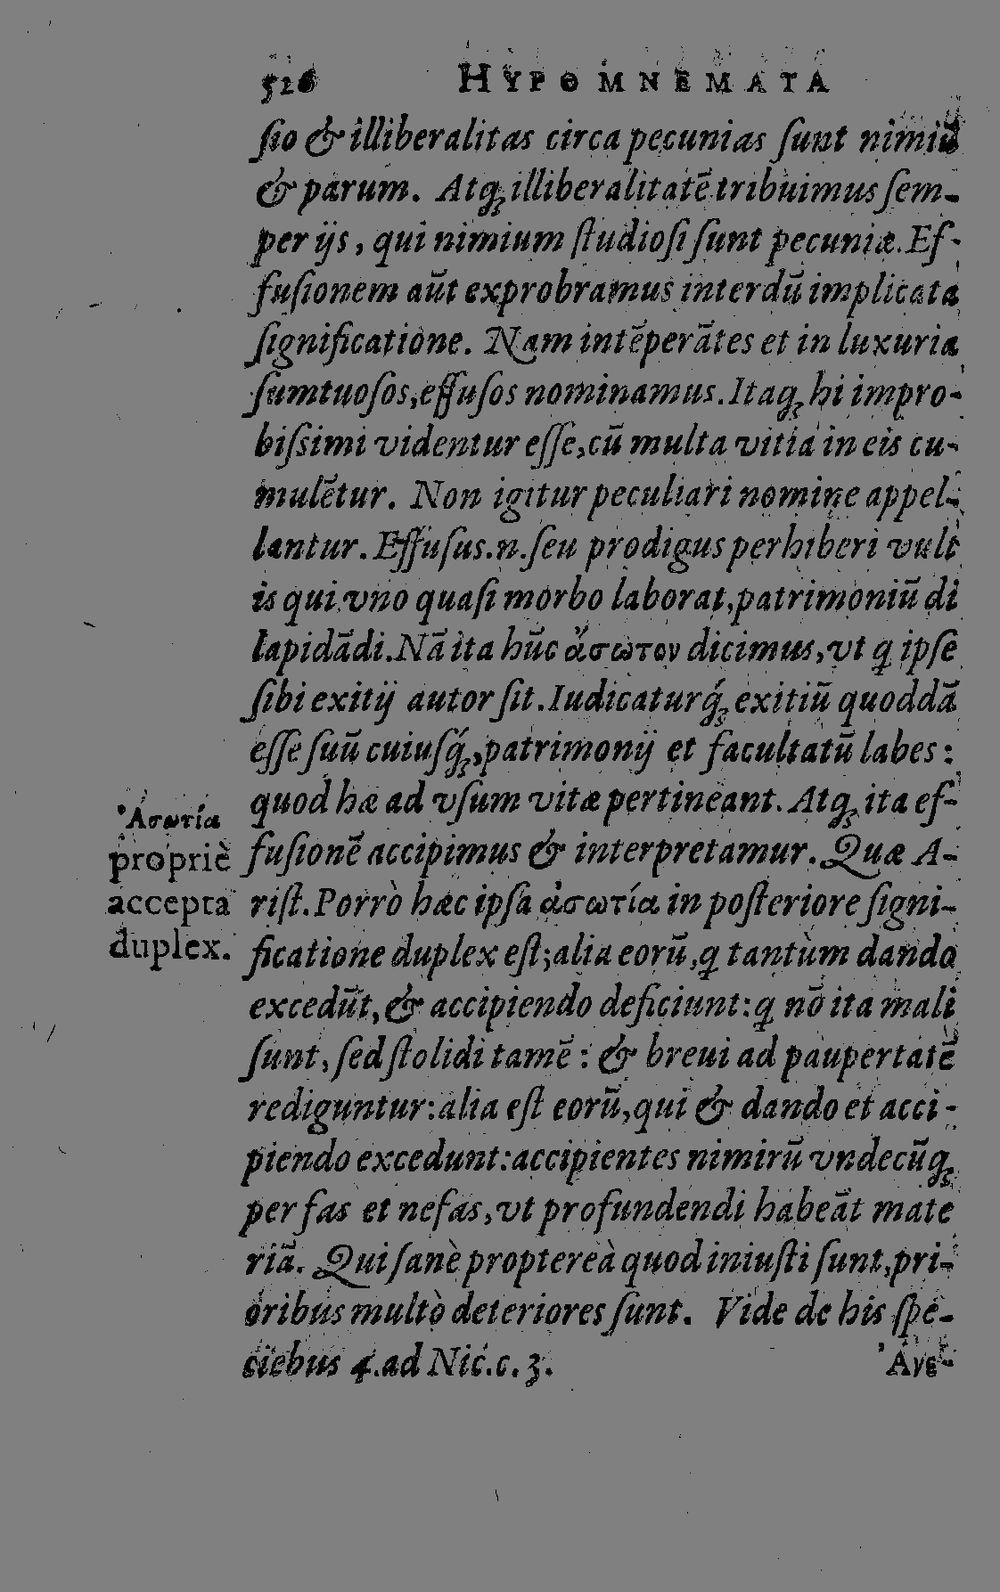 526 HYPOMNEMATA
ſio & illiberalitas circa pecunias ſunt nimiū
& parum. Atq́ꝫ illiberalitatē tribuimus ſem-
per ijs, qui nimium ſtudioſi ſunt pecuniæ. Ef-
fuſionem aūt exprobramus interdū implicata
ſignificatione. Nam intēperātes et in luxuria
ſumtuoſos, effuſos nominamus. Itaqꝫ hi impro-
biſsimi videntur eſſe, cū multa vitia in eis cu-
mulētur. Non igitur peculiari nomine appel-
lantur. Effuſus .n. ſeu prodigus perhiberi vult
is qui vno quaſi morbo laborat, patrimoniū di
lapidādi. Nā ita hūc ἄσωτον dicimus, vt q ipſe
ſibi exitij autor ſit. Iudicaturq́ꝫ exitiū quoddā
eſſe ſuū cuiuſq́ꝫ, patrimonij et facultatū labes:
quod hæ ad vſum vitæ pertineant. Atqꝫ ita ef-
fuſionē accipimus & interpretamur. Quæ A-
riſt. Porrò hæc ipſa ἀσωτία in poſteriore ſigni-
ficatione duplex eſt; alia eorū, q tantùm dando
excedūt, & accipiendo deficiunt: q nō ita mali
ſunt, ſed ſtolidi tamē: & breui ad paupertatē
rediguntur: alia eſt eorū, qui & dando et acci-
piendo excedunt: accipientes nimirū vndecūqꝫ
per fas et nefas, vt profundendi habeāt mate
riā. Qui ſanè propterea̍ quod iniuſti ſunt, pri-
oribus multò deteriores ſunt. Vide de his ſpe-
ciebus 4. ad Nic. c. 3.
Ἀνε-
Ἀσωτία
propriè
accepta
duplex.